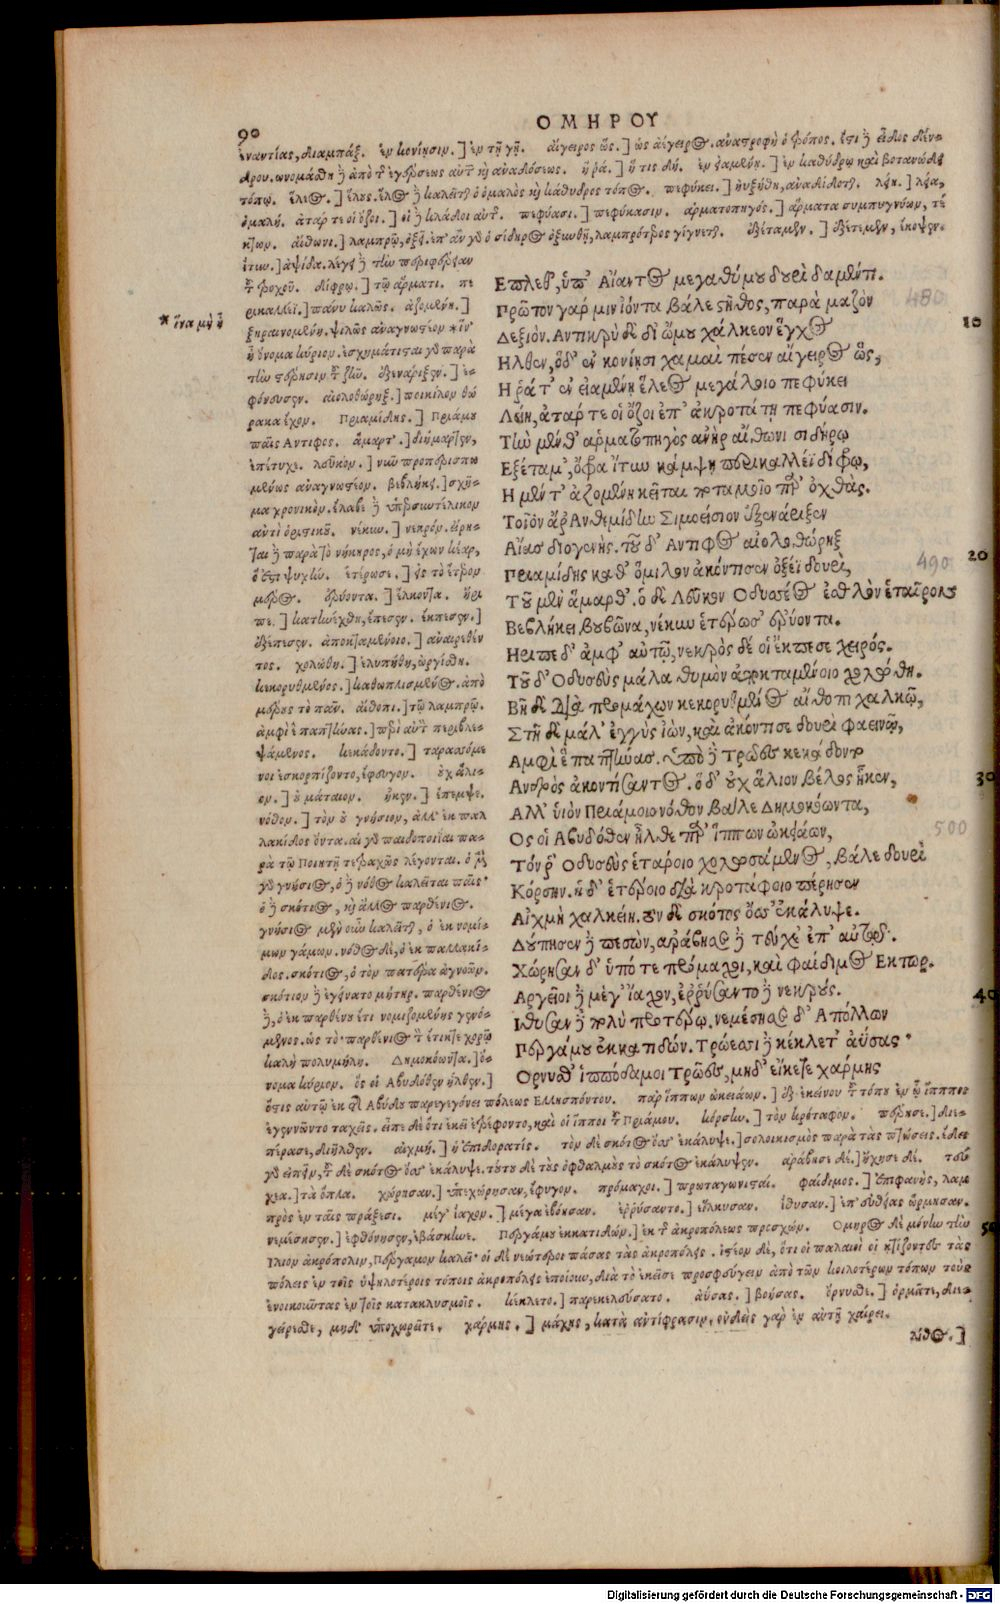 90
ΟΜΗΡΟΥ
ἐναντίας, διαμπάξ. ἐν κονίῃσιν.] ἐν τῇ γῇ. αἴγειρος ὥς.] ὡς αἴγειρος. ἀναστροφὴ ὁ τρόπος. ἔστι δὲ εἶδος δέν-
δρου. ὠνομάσθη δὲ ἀπὸ τῆς ἐγέρσεως αὐτῆς καὶ ἀναδόσεως. ἥ ῥά.] ἥ τις δή. ἐν εἱαμενῇ.] ἐν καθύδρῳ καὶ βοτανώδει
τόπῳ. ἕλεος.] ἕλους. ἕλος δὲ καλεῖται ὁ ὁμαλὸς καὶ κάθυδρος τόπος. πεφύκει.] ηὐξήθη, ἀναδίδοται. λείη.] λεία,
ὁμαλή. ἀτάρ τε οἱ ὄζοι.] οἱ δὲ κλάδοι αὐτῆς. πεφύασι.] πεφύκασιν. ἁρματοπηγός.] ἅρματα συμπηγνύων, τέ-
κτων. αἴθωνι.] λαμπρῷ, ὀξεῖ. ἐπ' ἂν γὰρ ὁ σίδηρος ὀξυνθῇ, λαμπρότερος γίγνεται. ἐξέταμεν.] ἐξέτεμεν, ἔκοψεν.
ἴτυν.] ἁψίδα. λέγει δὲ τὴν περιφέρειαν
τοῦ τροχοῦ. δίφρῳ.] τῷ ἅρματι. πε
ρικαλλέϊ.] πάνυ καλῷ. ἀζομένη.]
* ἵνα μὴ ᾖ
ξηραινομένη. ψιλῶς ἀναγνωστέον * ἵν'
ᾖ ὄνομα κύριον. ἐσχημάτισται γὰρ παρὰ
τὴν στέρησιν τοῦ ζῆν. ἐξενάριξεν.] ἐ-
φόνευσεν. αἰολοθώρηξ.] ποικίλον θώ
ρακα ἔχων. Πριαμίδης.] Πριάμου
παῖς Αντιφος. ἅμαρτ'.] διήμαρτεν,
ἐπέτυχε. λεῦκον.] νῦν προπερισπω
μένως ἀναγνωστέον. βεβλήκει.] σχῆ-
μα χρονικὸν. ἔλαβε δὲ ὑπερσυντέλικον
ἀντὶ ὁριστικοῦ. νέκυν.] νεκρόν. εἴρη-
ται δὲ παρὰ τὸ νήκηρος, ὁ μὴ ἔχων κέαρ,
ὅ ἐστι ψυχήν. ἑτέρωσε.] εἰς τὸ ἕτερον
μέρος. ἐρύοντα.] ἕλκοντα. ἤρι
πε.] κατηνέχθη, ἔπεσεν. ἔκπεσεν.]
ἐξέπεσεν. ἀποκταμένοιο.] ἀναιρεθέν
τος. χολώθη.] ἐλυπήθη, ὠργίσθη.
κεκορυθμένος.] καθωπλισμένος. ἀπὸ
μέρους τὸ πᾶν. αἴθοπι.] τῷ λαμπρῷ.
ἀμφὶ ἓ παπτήνας.] περὶ αὑτὸν περιβλε-
ψάμενος. κεκάδοντο.] ταρασσόμε
νοι ἐσκορπίζοντο, ἔφευγον. οὐχ ἅλι-
ον.] οὐ μάταιον. ἧκεν.] ἔπεμψε.
νόθον.] τὸν οὐ γνήσιον, ἀλλ' ἐκ παλ
λακίδος ὄντα. αἱ γὰρ παιδοποιΐαι πα-
ρὰ τῷ Ποιητῇ τετραχῶς λέγονται. ὁ μὲν
γὰρ γνήσιος, ὁ δὲ νόθος καλεῖται παῖς·
ὁ δὲ σκότιος, καὶ ἄλλος παρθένιος.
γνήσιος μὲν οὖν καλεῖται, ὁ ἐκ νομί-
μων γάμων. νόθος δὲ, ὁ ἐκ παλλακί-
δος. σκότιος, ὁ τὸν πατέρα ἀγνοῶν.
σκότιον δὲ ἐγείνατο μήτηρ. παρθένιος
δὲ, ὁ ἐκ παρθένου ἔτι νομιζομένης γενό-
μενος. ὡς τὸ· παρθένιος τὸν ἔτικτε χορῷ
καλὴ πολυμήλη. Δημοκόωντα.] ὄ-
νομα κύριον. ὅς οἱ Αβυδόθεν ἦλθεν.]
Επλεθ', ὑπ' Αἴαντος μεγαθύμου δουρὶ δαμέντι.
Πρῶτον γάρ μιν ἰόντα βάλε στῆθος, παρὰ μαζὸν 480
Δεξιόν. Αντικρὺ δὲ δι' ὤμου χάλκεον ἔγχος 10
Ηλθεν, ὅδ' ἐν κονίῃσι χαμαὶ πέσεν αἴγειρος ὥς,
Η ῥά τ' ἐν εἱαμενῇ ἕλεος μεγάλοιο πεφύκει
Λείη, ἀτάρ τε οἱ ὄζοι ἐπ' ἀκροτάτῃ πεφύασιν.
Τὴν μέν θ' ἁρματοπηγὸς ἀνὴρ αἴθωνι σιδήρῳ
Εξέταμ', ὄφρα ἴτυν κάμψῃ περικαλλέϊ δίφρῳ,
Η μέν τ' ἀζομένη κεῖται ποταμοῖο παρ' ὄχθας.
Τοῖον ἄρ' Ανθεμίδην Σιμοείσιον ἐξενάριξεν
Αἴας διογενής. τοῦ δ' Αντιφος αἰολοθώρηξ 20
Πριαμίδης καθ' ὅμιλον ἀκόντισεν ὀξέϊ δουρί, 490
Τοῦ μὲν ἅμαρθ'. ὁ δὲ Λεῦκον Οδυσσέος ἐσθλὸν ἑταῖρον
Βεβλήκει βουβῶνα, νέκυν ἑτέρωσ' ἐρύοντα.
Ηριπε δ' ἀμφ' αὐτῷ, νεκρὸς δέ οἱ ἔκπεσε χειρός.
Τοῦ δ' Οδυσεὺς μάλα θυμὸν ἀποκταμένοιο χολώθη.
Βῆ δὲ διὰ προμάχων κεκορυθμένος αἴθοπι χαλκῷ,
Στῆ δὲ μάλ' ἐγγὺς ἰὼν, καὶ ἀκόντισε δουρὶ φαεινῷ,
Αμφὶ ἓ παπτήνας. ὑπὸ δὲ Τρῶες κεκάδοντο
Ανδρὸς ἀκοντίσαντος. ὅ δ' οὐχ ἅλιον βέλος ἧκεν, 30
Αλλ' υἱὸν Πριάμοιο νόθον βάλε Δημοκόωντα,
Ος οἱ Αβυδόθεν ἦλθε παρ' ἵππων ὠκειάων, 500
Τόν ῥ' Οδυσεὺς ἑτάροιο χολωσάμενος, βάλε δουρὶ
Κόρσην. ἡ δ' ἑτέροιο διὰ κροτάφοιο πέρησεν
Αἰχμὴ χαλκείη. τὸν δὲ σκότος ὄσσ' ἐκάλυψε.
Δούπησεν δὲ πεσὼν, ἀράβησε δὲ τεύχε' ἐπ' αὐτῷ.
Χώρησαν δ' ὑπό τε πρόμαχοι, καὶ φαίδιμος Εκτωρ.
Αργεῖοι δὲ μέγ' ἴαχον, ἐῤῥύσαντο δὲ νεκρούς. 40
Ιθυσαν δὲ πολὺ προτέρω. νεμέσησε δ' Απόλλων
Περγάμου ἐκκατιδών. Τρώεσσι δὲ κέκλετ' ἀΰσας·
Ορνυσθ' ἱππόδαμοι Τρῶες, μηδ' εἴκετε χάρμης
ὅστις αὐτῷ ἐκ τῆς Αβύδου παρεγεγόνει πόλεως Ελλησπόντου. παρ' ἵππων ὠκειάων.] ἐξ ἐκείνου τοῦ τόπου ἐν ᾧ ἵπποι
ἐγεννῶντο ταχεῖς. εἶπε δὲ ὅτι ἐκεῖ ἐτρέφοντο, καὶ οἱ ἵπποι τοῦ Πριάμου. κόρσην.] τὸν κρόταφον. πέρησε.] διε-
πέρασε, διῆλθεν. αἰχμή.] ἡ ἐπιδορατίς. τὸν δὲ σκότος ὄσσ' ἐκάλυψε.] σολοικισμὸς παρὰ τὰς πτώσεις. ἔδει
γὰρ εἰπεῖν, τοῦ δὲ σκότος ὄσσ' ἐκάλυψε. τούτου δὲ τοὺς ὀφθαλμοὺς τὸ σκότος ἐκάλυψεν. ἀράβησε δέ.] ἤχησε δέ. τεύ
χεα.] τὰ ὅπλα. χώρησαν.] ὑπεχώρησαν, ἔφυγον. πρόμαχοι.] πρωταγωνισταί. φαίδιμος.] ἐπιφανὴς, λαμ
πρὸς ἐν ταῖς πράξεσι. μέγ' ἴαχον.] μέγα ἐβόησαν. ἐρρύσαντο.] εἵλκυσαν. ἴθυσαν.] ἐπ' εὐθείας ὥρμησαν.
νεμέσησεν.] ἐφθόνησεν, ἐβάσκηνε. Περγάμου ἐκκατιδών.] ἐκ τῆς ἀκροπόλεως προσχών. Ομηρος δὲ μόνην τὴν 50
Ιλίου ἀκρόπολιν, Πέργαμον καλεῖ· οἱ δὲ νεώτεροι πάσας τὰς ἀκροπόλεις. ἰστέον δὲ, ὅτι οἱ παλαιοὶ οἱ κτίζοντες τὰς
πόλεις ἐν τοῖς ὑψηλοτέροις τόποις ἀκροπόλεις ἐποίουν, διὰ τὸ ἐκεῖσε προσφεύγειν ἀπὸ τῶν κοιλοτέρων τόπων τοὺς
ἐνοικοῦντας ἐν τοῖς κατακλυσμοῖς. κέκλετο.] παρεκελεύσατο. ἀΰσας.] βοήσας. ὄρνυσθε.] ὁρμᾶτε, διε-
γείρεσθε, μηδ' ὑποχωρεῖτε. χάρμης.] μάχης, κατὰ ἀντίφρασιν. οὐδεὶς γὰρ ἐν αὐτῇ χαίρει.
λίθος.]
Digitalisierung gefördert durch die Deutsche Forschungsgemeinschaft - DFG